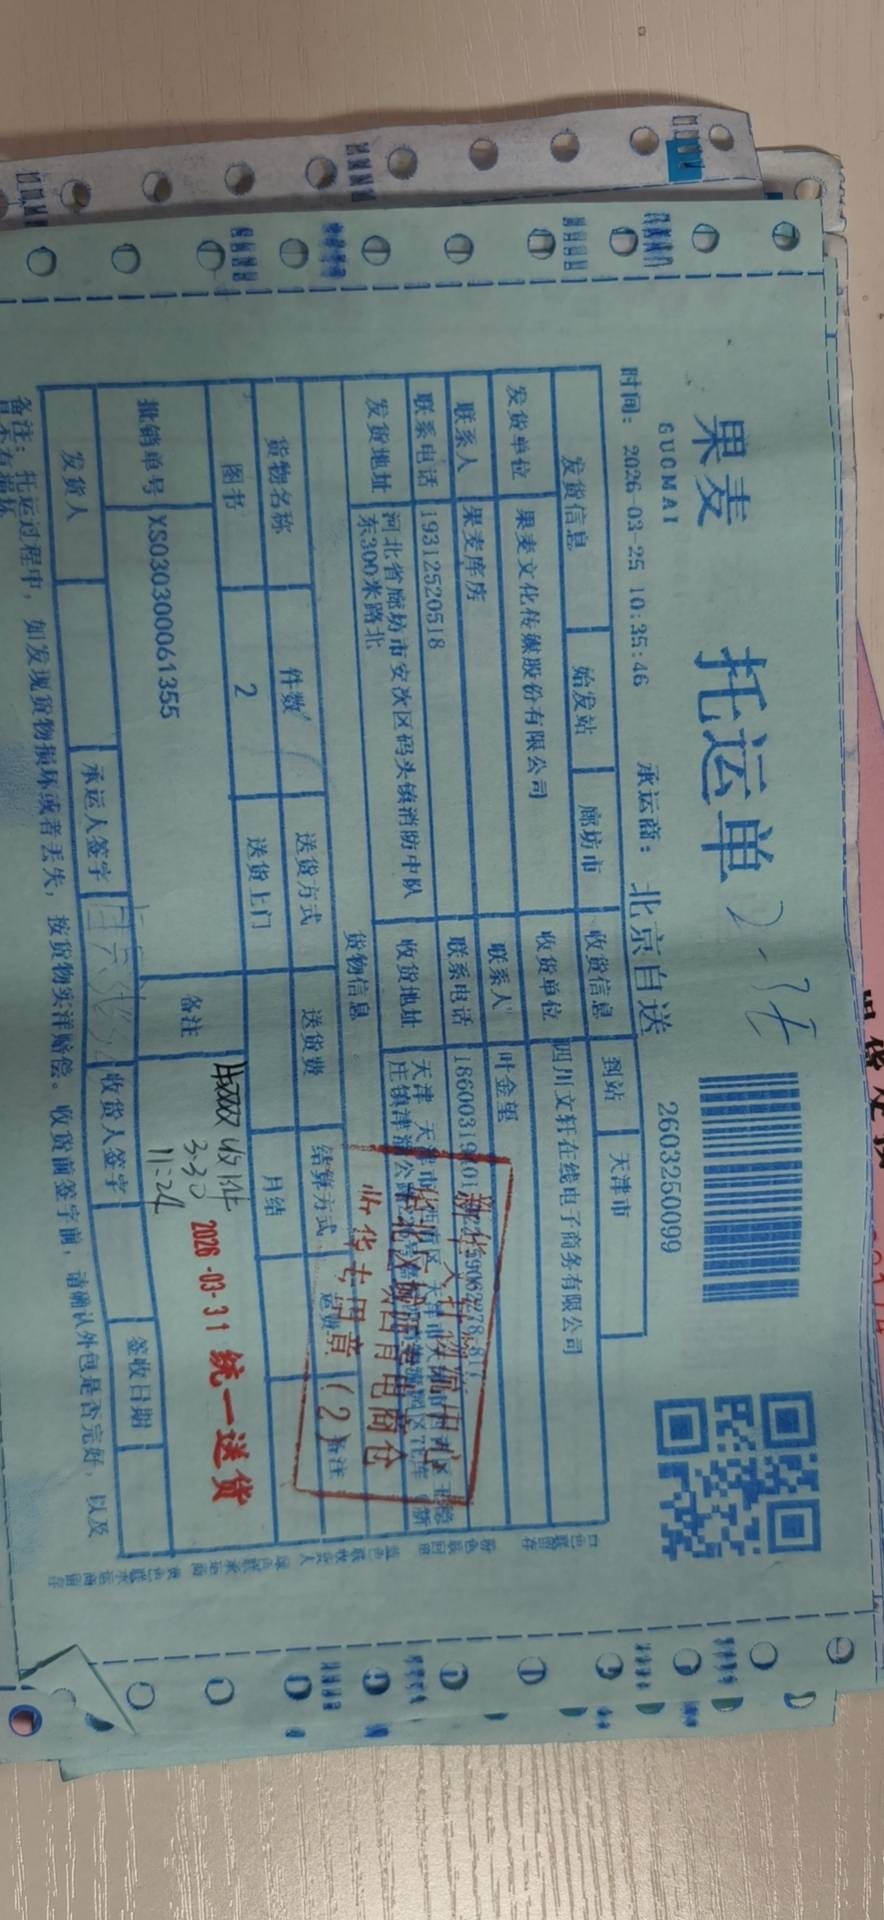 果麦
GUOMAI
托运单
时间: 2026-03-25 10:35:46 承运商: 北京自送 2603250099
发货信息 始发站 廊坊市 收货信息 到站 天津市
发货单位 果麦文化传媒股份有限公司 收货单位 四川文轩在线电子商务有限公司
联系人 果麦库房 联系人 叶金望
联系电话 19312520518 联系电话
发货地址 河北省廊坊市安次区码头镇消防中队东300米路北 收货地址 天津
货物信息
货物名称 件数 送货方式 送货费 结算方式 运费 备注
图书 2 送货上门 月结
报销单号 XS030300061355 备注
收件
3.30
11:24
2026-03-31 统一送货
专用章(2)
发货人 承运人签字 收货人签字 签收日期
备注: 托运过程中, 如发现货物损坏或者丢失, 按货物实洋赔偿。收货前签字前, 请确认外包是否完好, 以及